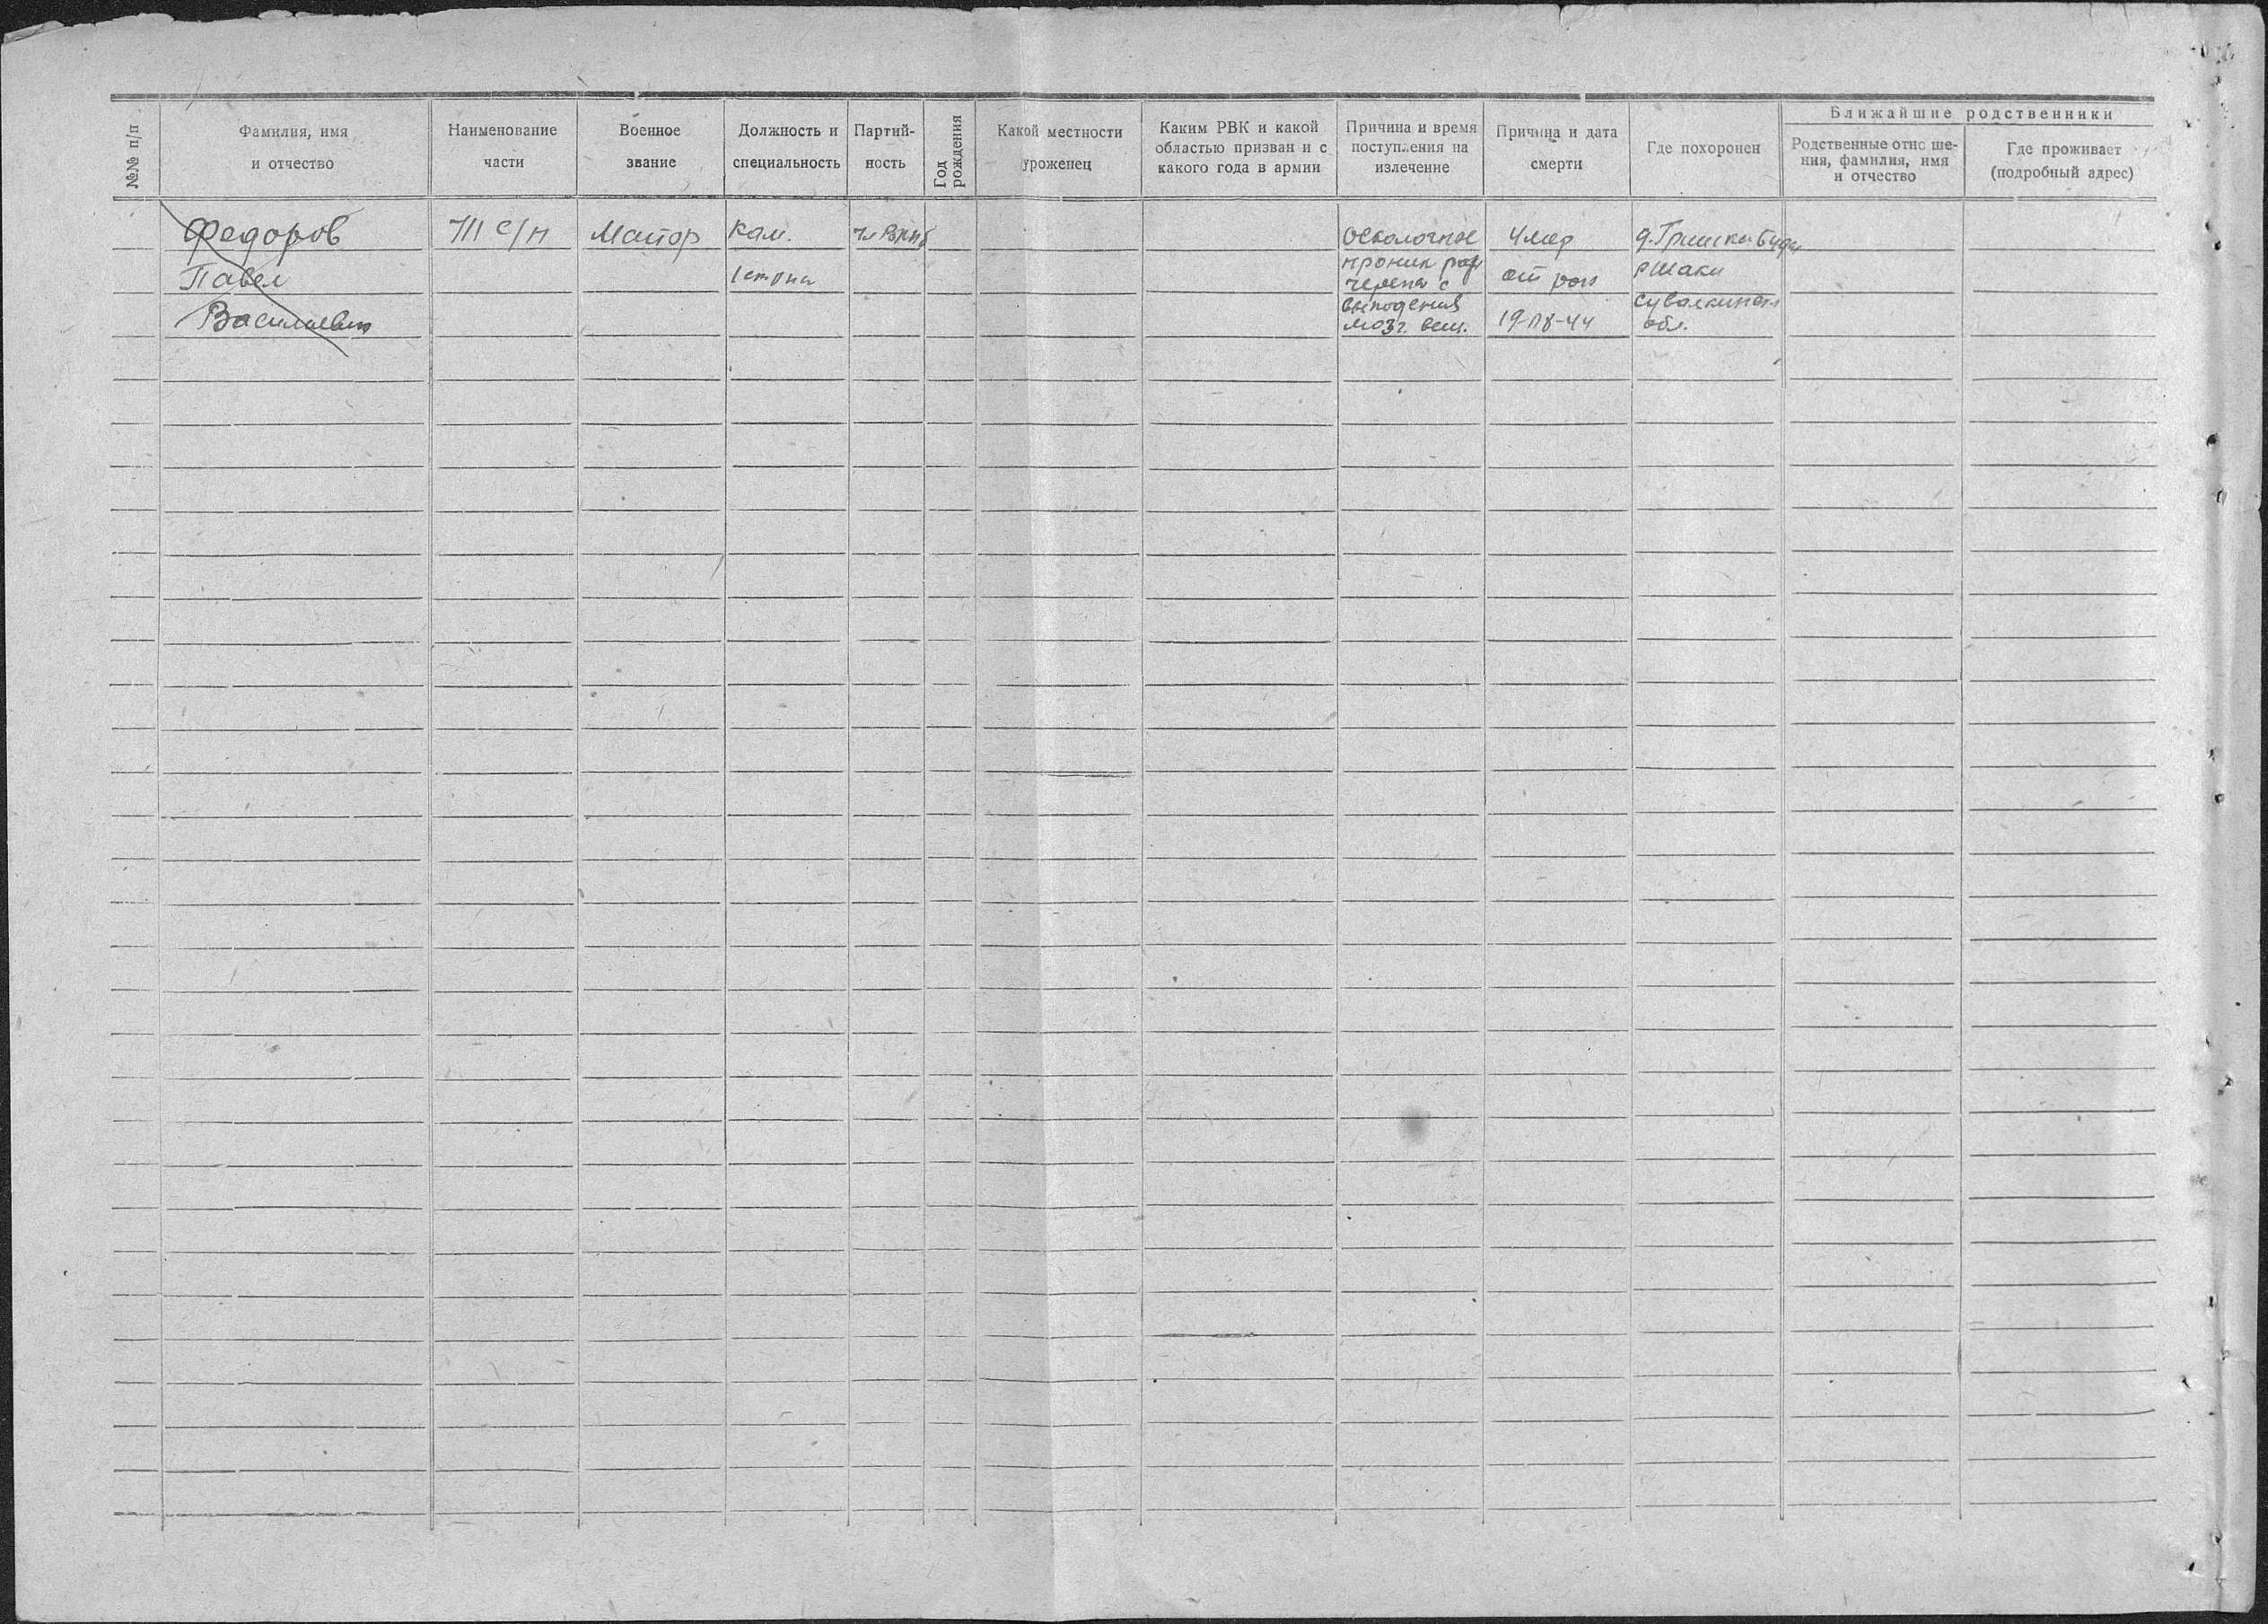 №№ п/п
Фамилия, имя
и отчество
Наименование
части
Военное
звание
Должность и
специальность
Партий-
ность
Год
рождения
Какой местности
уроженец
Каким РВК и какой
областью призван и с
какого года в армии
Причина и время
поступления на
излечение
Причина и дата
смерти
Где похоронен
Ближайшие родственники
Родственные отно ше-
ния, фамилия, имя
и отчество
Где проживает
(подробный адрес)
Федоров
Павел
Василиевич
711 С/П
Майор
Ком.
1 стр
чл ВКПб
Осколочное
проник ран
черепа с
выпадения
мозг. вещ.
Умер
от ран
19-08-44
д. Гришка Буда
р Шаки
Сувалкинск
обл.